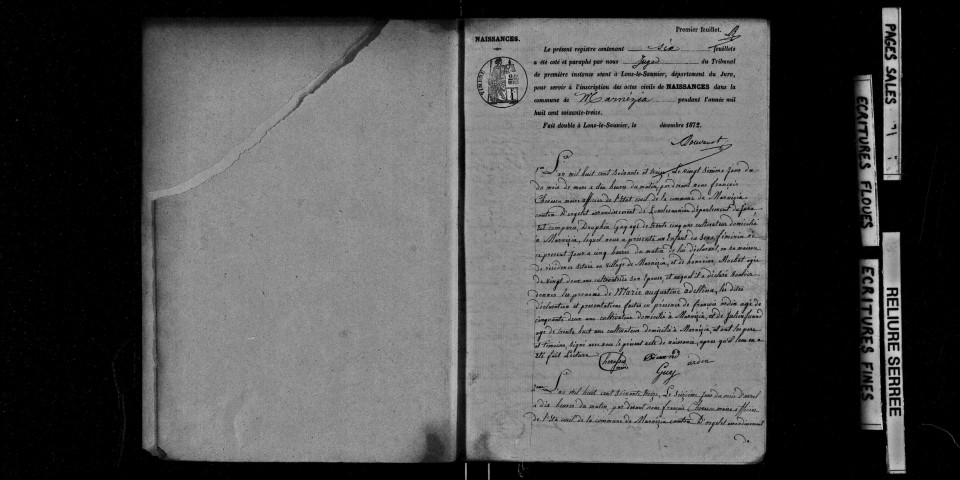 Premier feuillet.
NAISSANCES.
Le présent registre contenant six feuillets
a été coté et paraphé par nous Juge du Tribunal
de première instance séant à Lons-le-Saunier, département du Jura,
pour servir à l'inscription des actes civils de NAISSANCES dans la
commune de Marnézia pendant l'année mil
huit cent soixante-treize.
Fait double à Lons-le-Saunier, le décembre 1872.
TIMBRE
L'an mil huit cent soixante et treize, Le vingt sixième jour du
du mois de mars a dix heures du matin, par devant nous françois
maire officier de l'Etat civil de la commune de Marnézia
canton D'orgelet arrondissement de Lonslesaunier département du Jura
Est comparu, Dauphin Guy agé de trente cinq ans cultivateur domicilié
à Marnézia, lequel nous a présenté un Enfant du sexe féminin né
ce présent jour a cinq heures du matin de lui déclarant, en sa maison
de résidence située au village de Marnézia, et de agée
de vingt deux ans cultivatrice son épouse, et auquel il a déclaré vouloir
donner les prénoms de Marie augustine adellina, les dites
déclaration et présentations faites en présence de françois agé de
cinquante deux ans cultivateur domicilié à Marnézia, et de
agé de trente huit ans cultivateur domicilié à Marnézia, et ont les père
et témoins, signé avec nous le présent acte de naissance, après qu'il leur en a
été fait Lecture.
Guy
L'an mil huit cent soixante treize, Le sixième jour du mois d'avril
a dix heures du matin, par devant nous françois maire officier
de l'Eta civil de la commune de Marnézia canton D'orgelet arrondissement
de
PAGES SALES
ECRITURES FLOUES
ECRITURES FINES
RELIURE SERRÉE